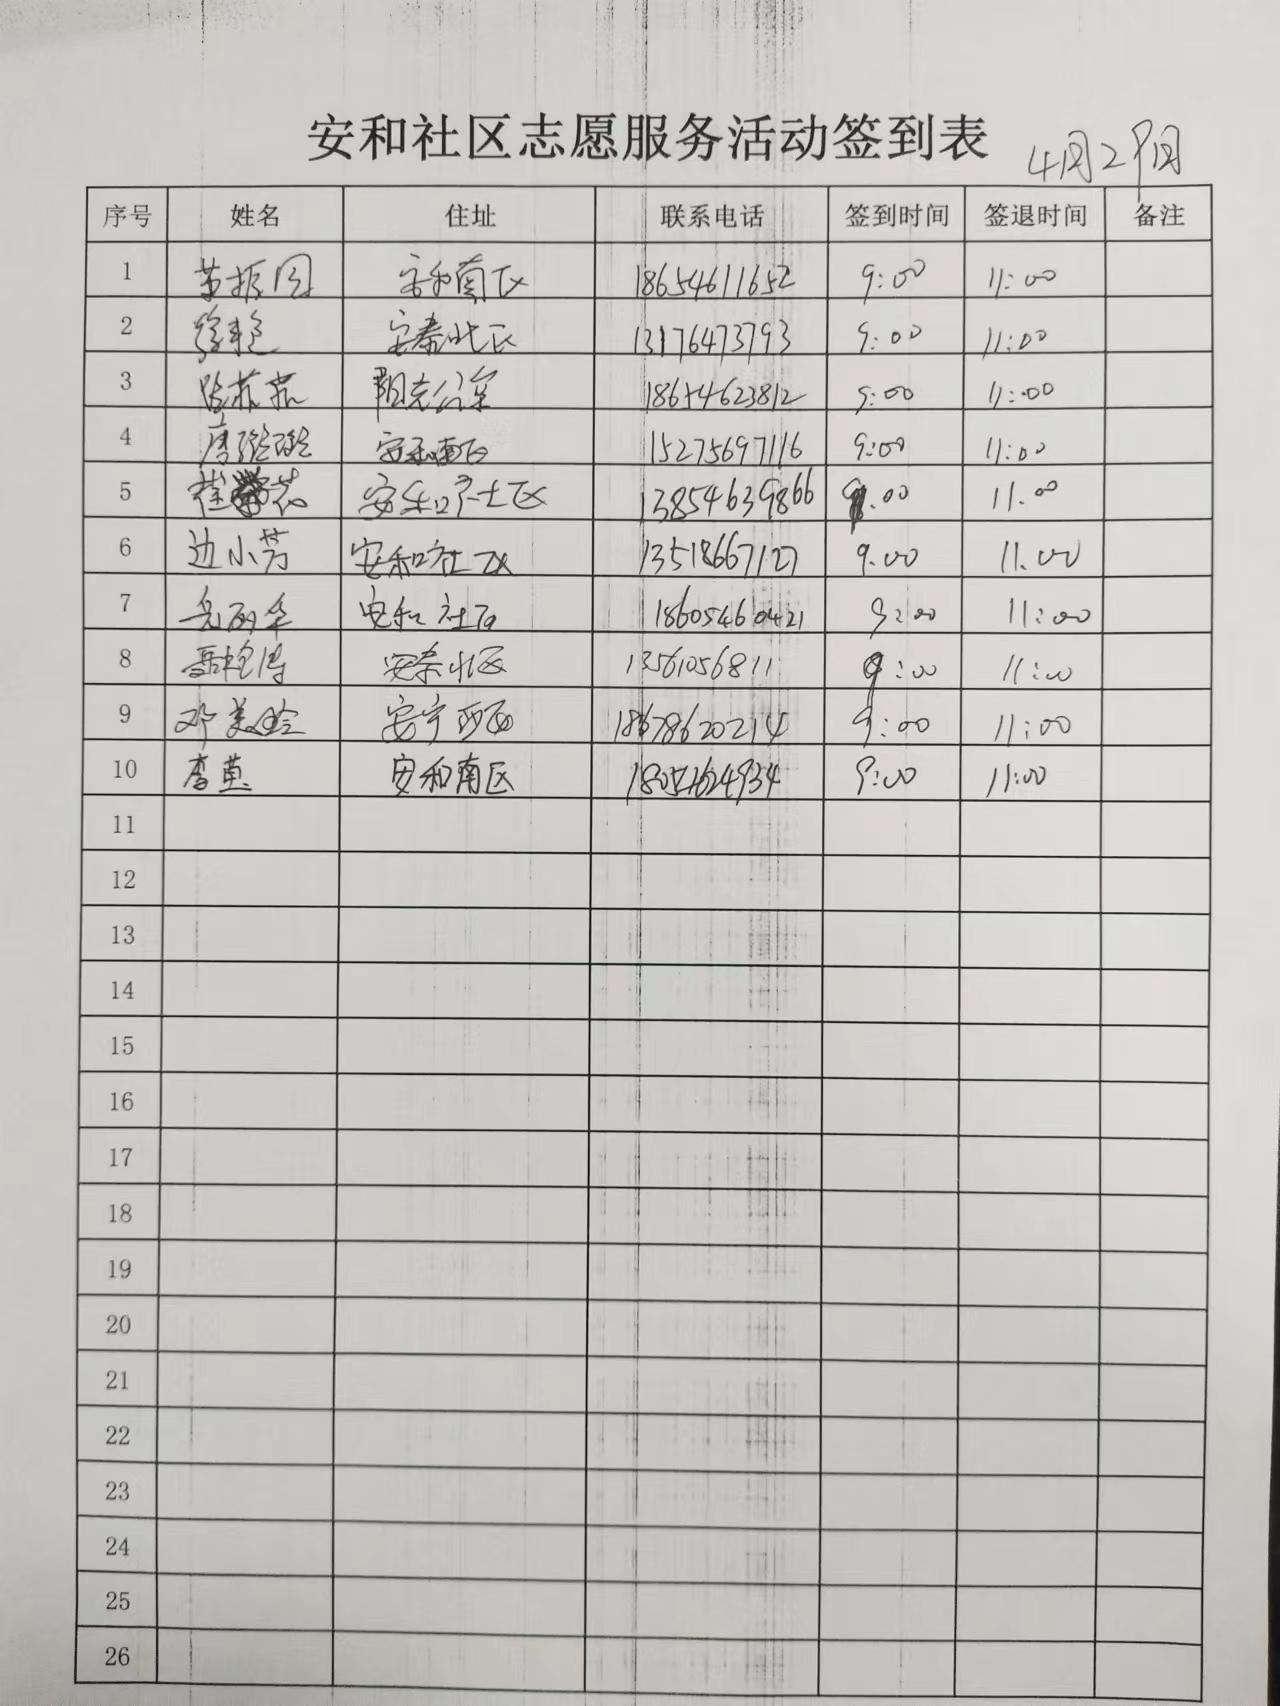 安和社区志愿服务活动签到表 4月29日
序号 姓名 住址 联系电话 签到时间 签退时间 备注
1 安和南区 18654611652 9:00 11:00
2 徐艳 安泰北区 13176473793 9:00 11:00
3 阳光公寓 18654623812 9:00 11:00
4 唐 安和南区 15275697116 9:00 11:00
5 崔 安和社区 13854639866 9.00 11.00
6 边小芳 安和社区 13518667127 9.00 11.00
7 安和社区 18605460421 9:00 11:00
8 安泰北区 13561056811 9:00 11:00
9 邓美玲 安宁西区 18678620214 9:00 11:00
10 李 安和南区 9:00 11:00
11
12
13
14
15
16
17
18
19
20
21
22
23
24
25
26